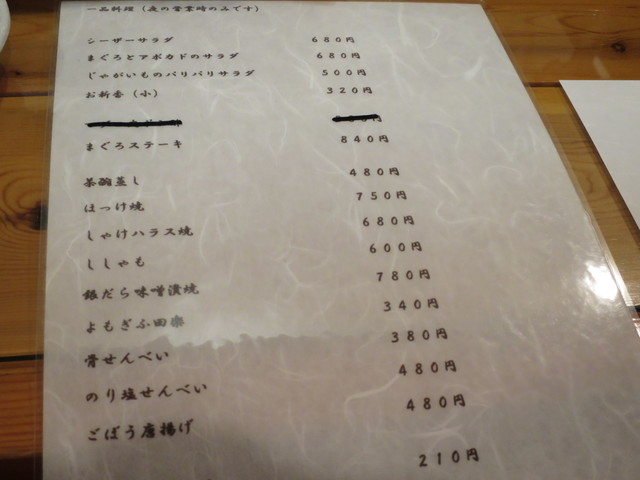 一品料理（夜の営業時のみです）
シーザーサラダ 680円
まぐろとアボカドのサラダ 680円
じゃがいものパリパリサラダ 500円
お新香（小） 320円
まぐろステーキ 840円
茶碗蒸し 480円
ほっけ焼 750円
しゃけハラス焼 680円
ししゃも 600円
銀だら味噌漬焼 780円
よもぎふ田楽 340円
骨せんべい 380円
のり塩せんべい 480円
ごぼう唐揚げ 480円
210円